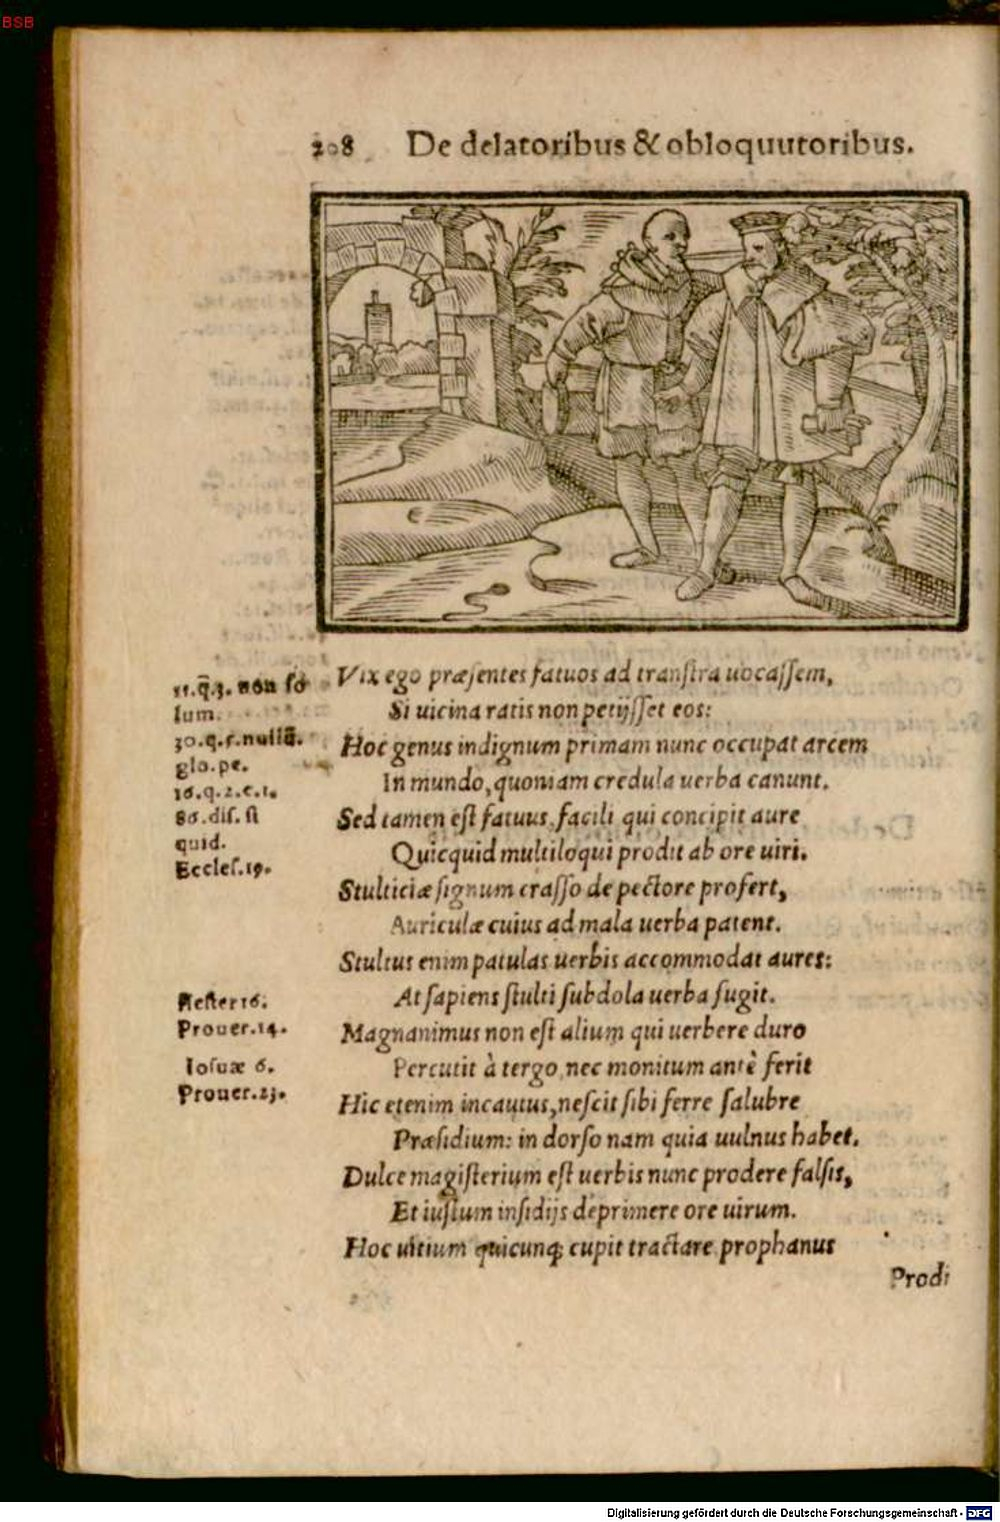 BSB
208 De delatoribus & obloquutoribus.
11.q̃.3. non so
lum.
30.q.5.nullã.
glo.pe.
16.q.2.c.1.
86.dis. si
quid.
Eccles.19.
Vix ego præsentes fatuos ad transtra uocassem,
Si uicina ratis non petijsset eos:
Hoc genus indignum primam nunc occupat arcem
In mundo, quoniam credula uerba canunt.
Sed tamen est fatuus, facili qui concipit aure
Quicquid multiloqui prodit ab ore uiri.
Stulticiæ signum crasso de pectore profert,
Auriculæ cuius ad mala uerba patent.
Stultus enim patulas uerbis accommodat aures:
Hester 16.
At sapiens stulti subdola uerba fugit.
Prouer.14.
Magnanimus non est alium qui uerbere duro
Iosuæ 6.
Percutit à tergo, nec monitum antè ferit
Prouer.23.
Hic etenim incautus, nescit sibi ferre salubre
Præsidium: in dorso nam quia uulnus habet.
Dulce magisterium est uerbis nunc prodere falsis,
Et iustum insidijs deprimere ore uirum.
Hoc uitium quicunq; cupit tractare prophanus
Prodi
Digitalisierung gefördert durch die Deutsche Forschungsgemeinschaft - DFG